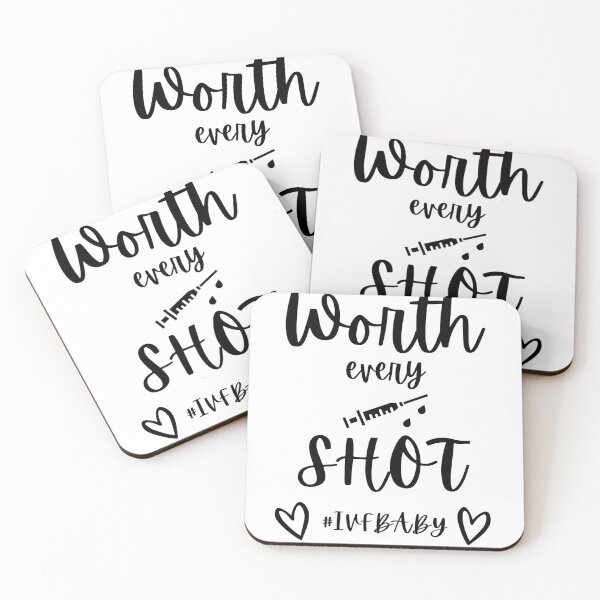 Worth
every
Worth
every
SHOT
Worth
every
SHOT
Worth
every
SHOT
#IVFBABY